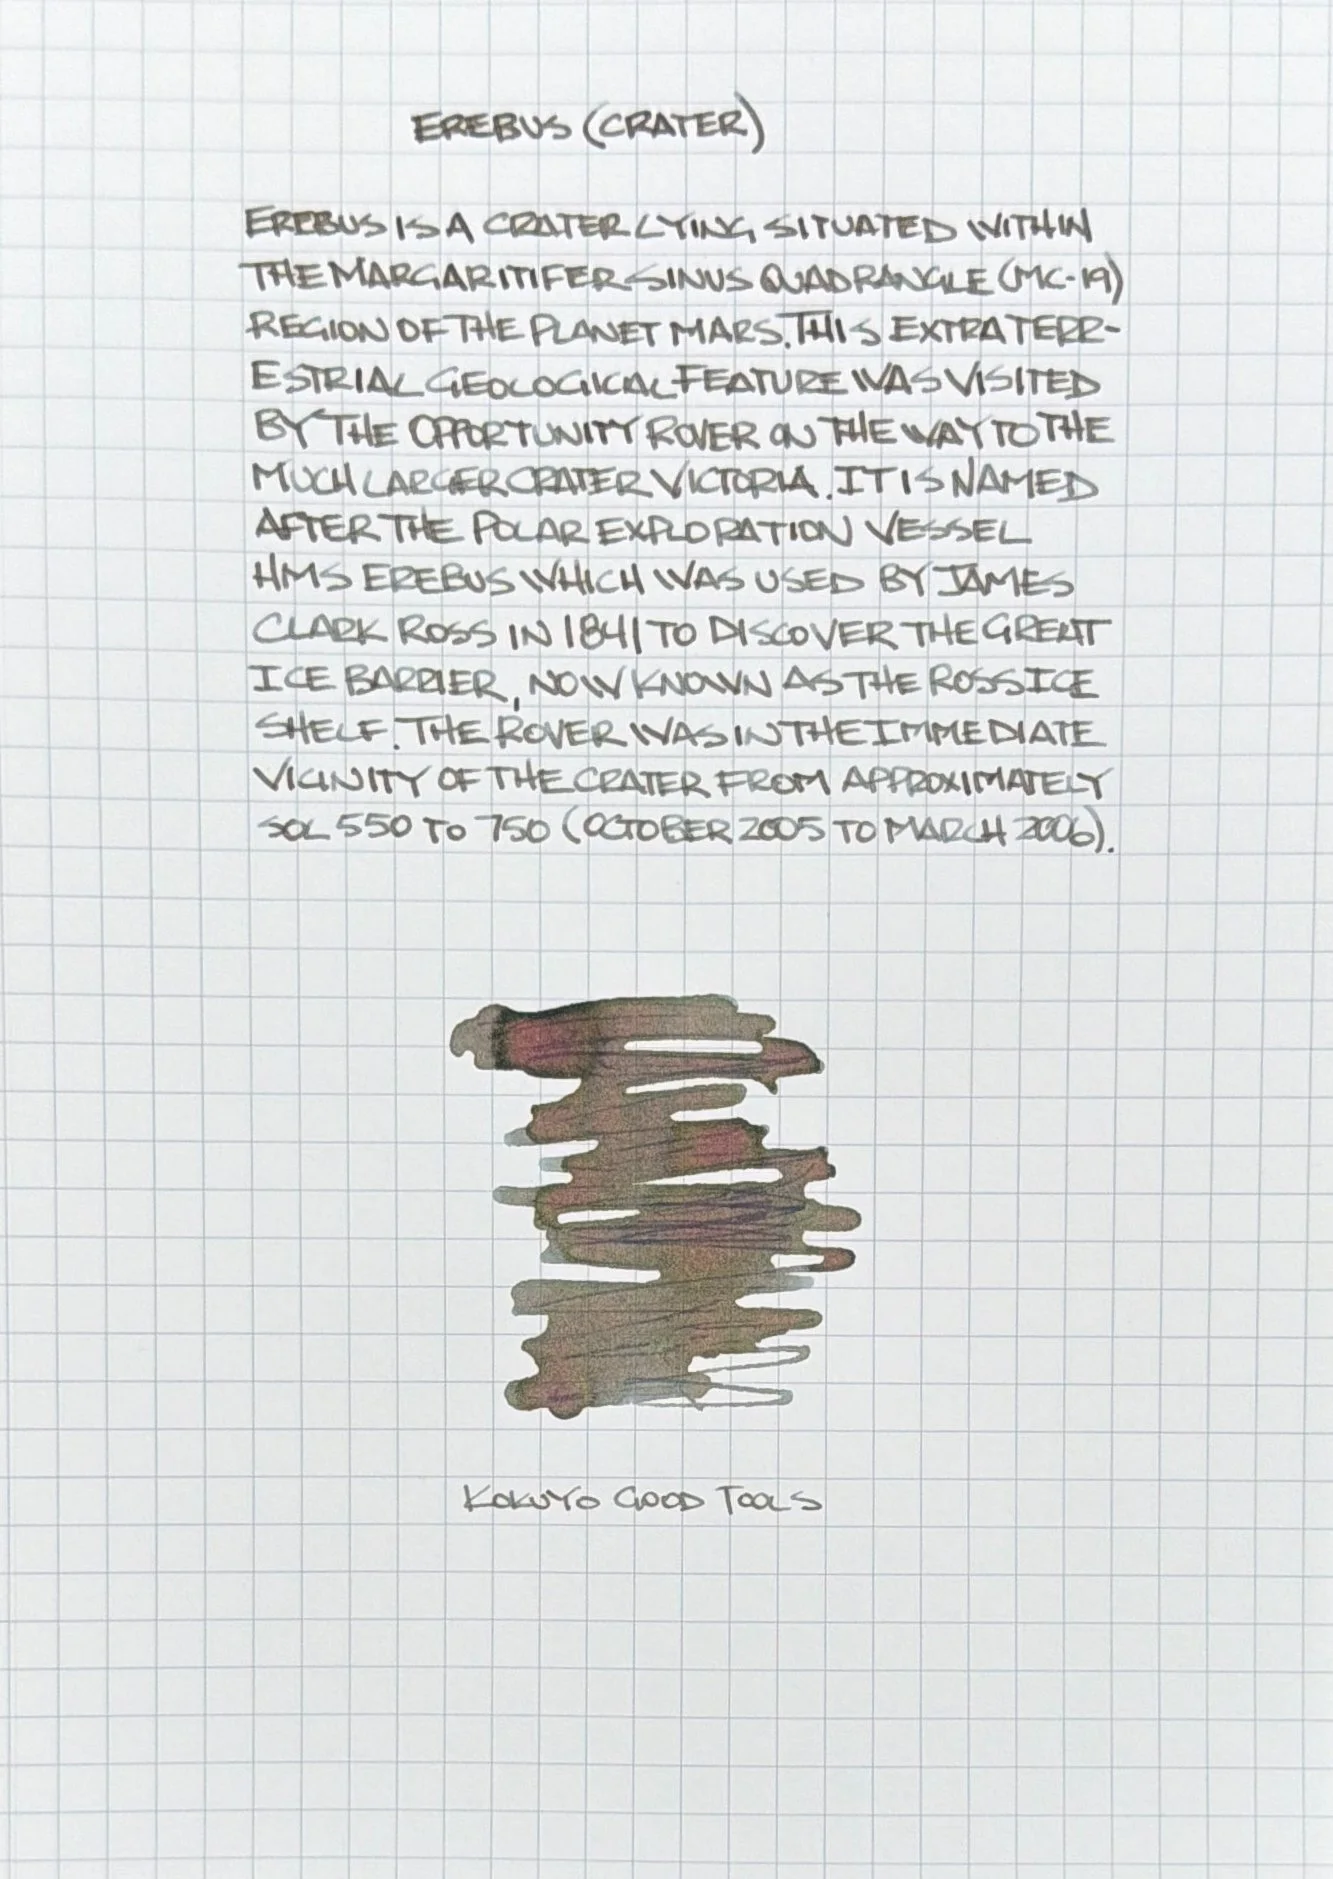 EREBUS (CRATER)
EREBUS IS A CRATER LYING SITUATED WITHIN
THE MARGARITIFER SINUS QUADRANGLE (MC-19)
REGION OF THE PLANET MARS. THIS EXTRATERR-
ESTRIAL GEOLOGICAL FEATURE WAS VISITED
BY THE OPPORTUNITY ROVER ON THE WAY TO THE
MUCH LARGER CRATER VICTORIA. IT IS NAMED
AFTER THE POLAR EXPLORATION VESSEL
HMS EREBUS WHICH WAS USED BY JAMES
CLARK ROSS IN 1841 TO DISCOVER THE GREAT
ICE BARRIER, NOW KNOWN AS THE ROSS ICE
SHELF. THE ROVER WAS IN THE IMMEDIATE
VICINITY OF THE CRATER FROM APPROXIMATELY
SOL 550 TO 750 (OCTOBER 2005 TO MARCH 2006).
KOKUYO GOOD TOOLS